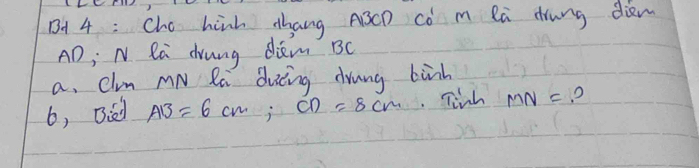 Bài 4 : Cho hình thang ABCD có M là trung điểm
AD ; N là trung điểm BC
a. C/m MN là đường trung bình
b, Biết AB = 6 cm ; CD = 8 cm . Tính MN = ?